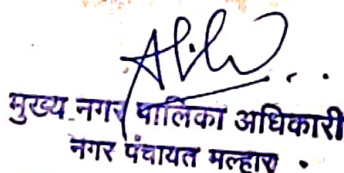 मुख्य नगर पालिका अधिकारी
नगर पंचायत मल्हार